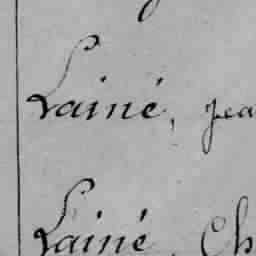 Lainé, Jea
Lainé, Ch